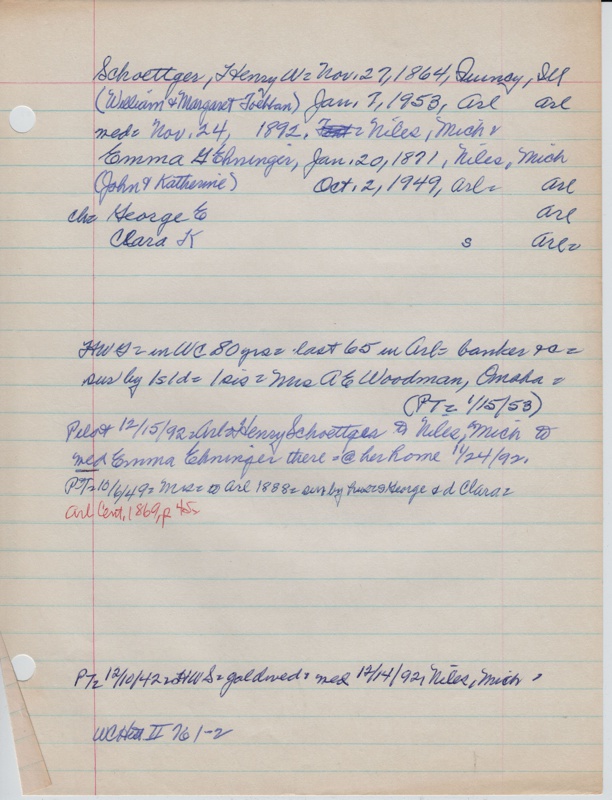 Schoettger, Henry W= Nov. 27, 1864, Quincy, Ill
(William & Margaret Toelvan) Jan. 7, 1953, Arl arl
med= Nov. 24, 1892. = Niles, Mich &
Emma G Ehninger, Jan. 20, 1871, Niles, Mich
(John & Katherine) Oct. 2, 1949, Arl= arl
ch= George E arl
Clara K s arl=
HWS= in WC 80 yrs= last 65 in Arl= banker &c=
sur by 1s 1d= 1 sis= Mrs A E Woodman, Omaha=
(PT= 1/15/53)
Pilot 12/15/92= Arl= Henry Schoettger to Niles, Mich to
med Emma Ehninger there= @ her home 11/24/92.
PT= 10/6/49= Mrs= to Arl 1888= sur by hus= s George & d Clara=
Arl Cent. 1869, p 45=
PT= 12/10/42= HWS= gold wed= med 12/14/92, Niles, Mich=
WC Hist II 761-2